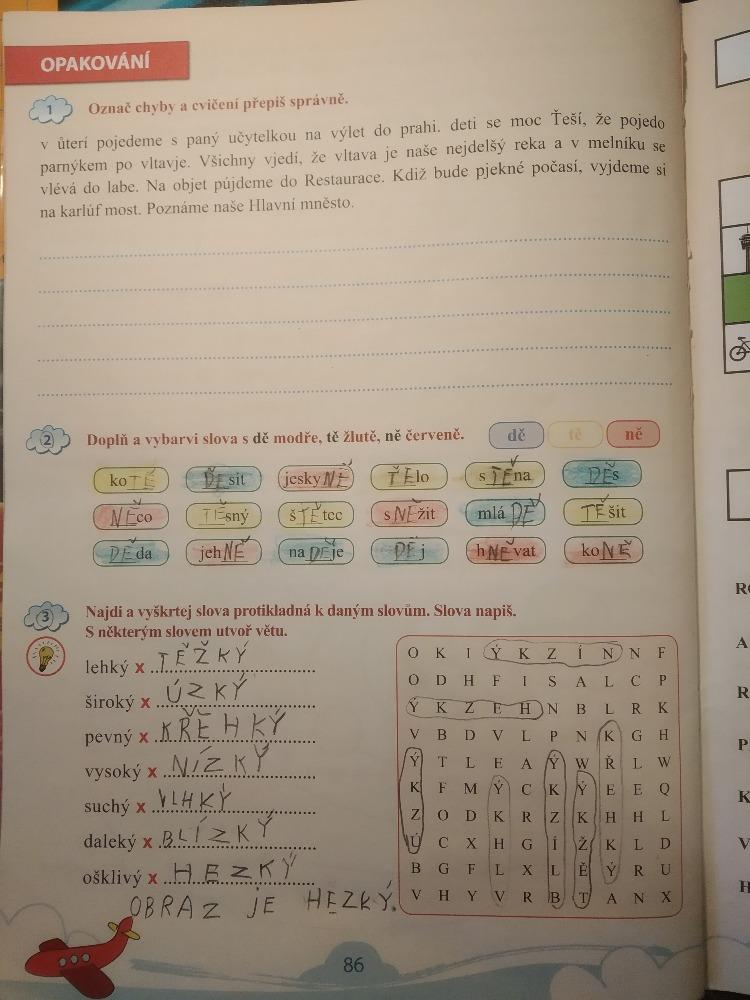 OPAKOVÁNÍ
1 Označ chyby a cvičení přepiš správně.
v ůterí pojedeme s paný učytelkou na výlet do prahi. deti se moc Ťeší, že pojedo
parnýkem po vltavje. Všichny vjedí, že vltava je naše nejdelšý reka a v melníku se
vlévá do labe. Na objet půjdeme do Restaurace. Kdiž bude pjekné počasí, vyjdeme si
na karlúf most. Poznáme naše Hlavní mněsto.
2 Doplň a vybarvi slova s dě modře, tě žlutě, ně červeně. dě tě ně
koTĚ DĚsit jeskyNĚ TĚlo sTĚna DĚs
NĚco TĚsný šTĚtec sNĚžit mláDĚ TĚšit
DĚda jehNĚ naDĚje DĚj hNĚvat koNĚ
3 Najdi a vyškrtej slova protikladná k daným slovům. Slova napiš.
S některým slovem utvoř větu.
lehký x TĚŽKÝ
široký x ÚZKÝ
pevný x KŘEHKÝ
vysoký x NÍZKÝ
suchý x VLHKÝ
daleký x BLÍZKÝ
ošklivý x HEZKÝ
OBRAZ JE HEZKÝ.
O K I Ý K Z Í N N F
O D H F I S A L C P
Ý K Z E H N B L R K
V B D V L P N K G H
Ý T L E A Ý W Ř L W
K F M Ý C K Ý E E Q
Z O D K R Z K H H L
Ú C X H G Í Ž K L D
B G F L X L Ě Ý R U
V H Y V R B T A N X
86